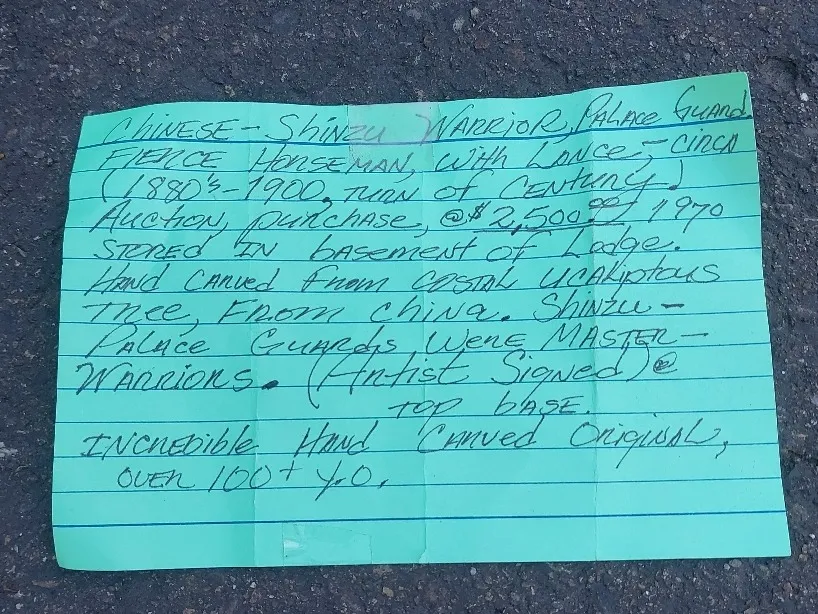 CHINESE - Shinzu WARRIOR, PALACE GUARD.
FIERCE HORSEMAN, WITH LANCE, - CIRCA
(1880's - 1900, TURN OF CENTURY.)
AUCTION, purchase, @ $2,500.00 1970
STORED IN basement OF Lodge.
HAND CARVED FROM COSTAL UCALIPTOUS
TREE, FROM CHINA. SHINZU -
PALACE GUARDS WERE MASTER -
WARRIORS. (Artist Signed) @
TOP base.
INCREDIBLE HAND CARVED ORIGINAL,
OVER 100+ Y.O.